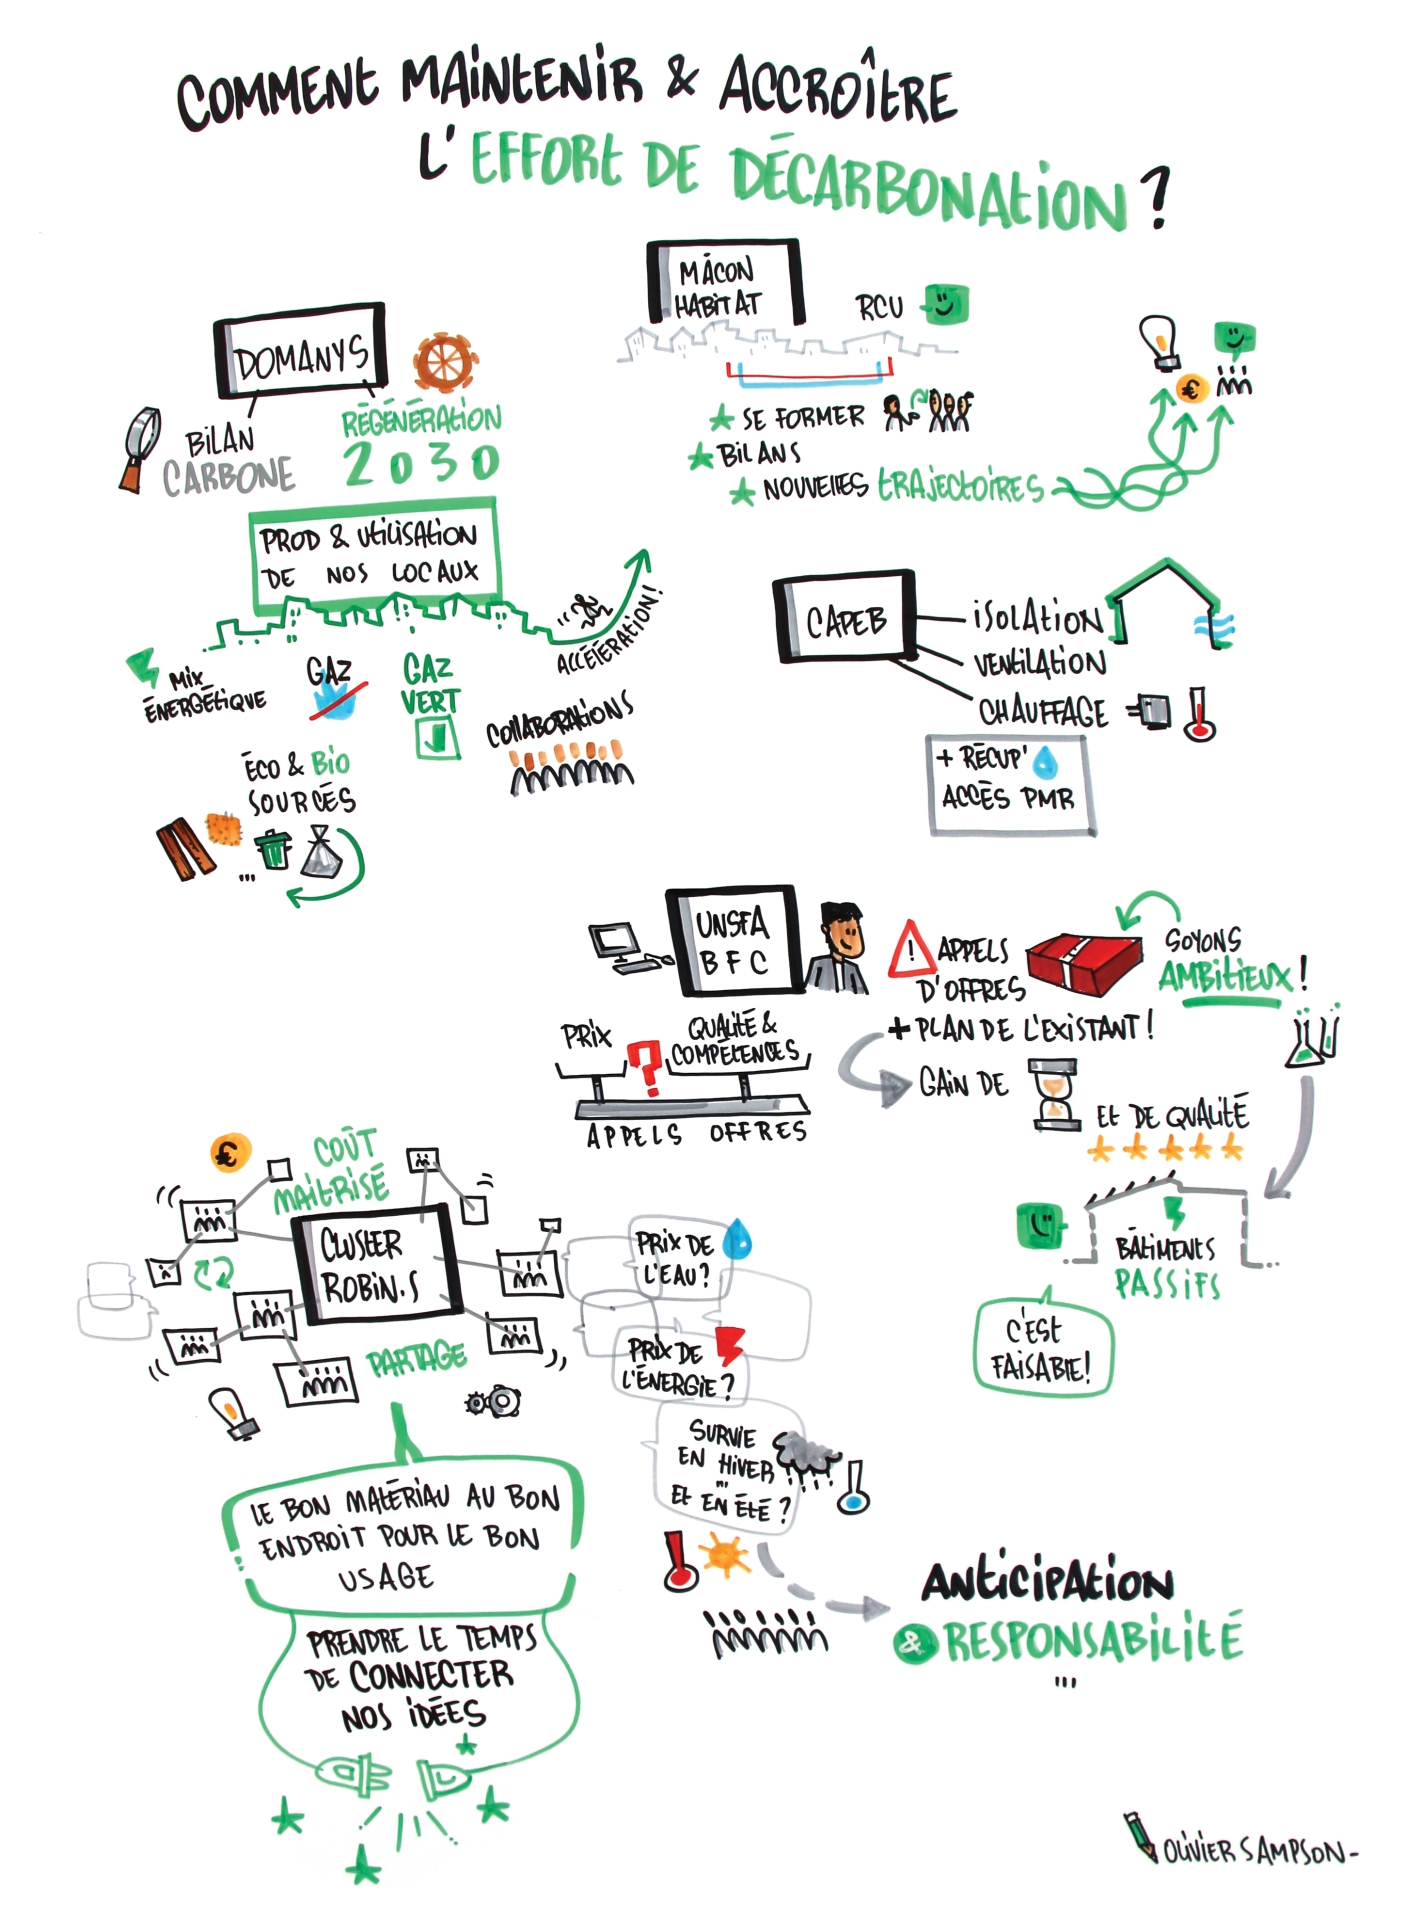 COMMENT MAINTENIR & ACCROÎTRE
L'EFFORT DE DÉCARBONATION ?
DOMANYS
BILAN
CARBONE
RÉGÉNÉRATION
2030
PROD & UTILISATION
DE NOS LOCAUX
ACCÉLÉRATION!
MIX
ÉNERGÉTIQUE
GAZ
GAZ
VERT
COLLABORATIONS
ÉCO & BIO
SOURCÉS
...
MÂCON
HABITAT
RCU
SE FORMER
BILANS
NOUVELLES TRAJECTOIRES
€
CAPEB
ISOLATION
VENTILATION
CHAUFFAGE
+ RÉCUP'
ACCÈS PMR
UNSFA
BFC
! APPELS
D'OFFRES
+ PLAN DE L'EXISTANT !
GAIN DE
ET DE QUALITÉ
SOYONS
AMBITIEUX !
PRIX
?
QUALITÉ &
COMPÉTENCES
APPELS OFFRES
BÂTIMENTS
PASSIFS
C'EST
FAISABLE!
€
COÛT
MAITRISÉ
CLUSTER
ROBIN.S
PARTAGE
LE BON MATÉRIAU AU BON
ENDROIT POUR LE BON
USAGE
PRENDRE LE TEMPS
DE CONNECTER
NOS IDÉES
PRIX DE
L'EAU?
PRIX DE
L'ÉNERGIE?
SURVIE
EN HIVER
...
ET EN ÉTÉ ?
ANTICIPATION
& RESPONSABILITÉ
...
OLIVIER SAMPSON-